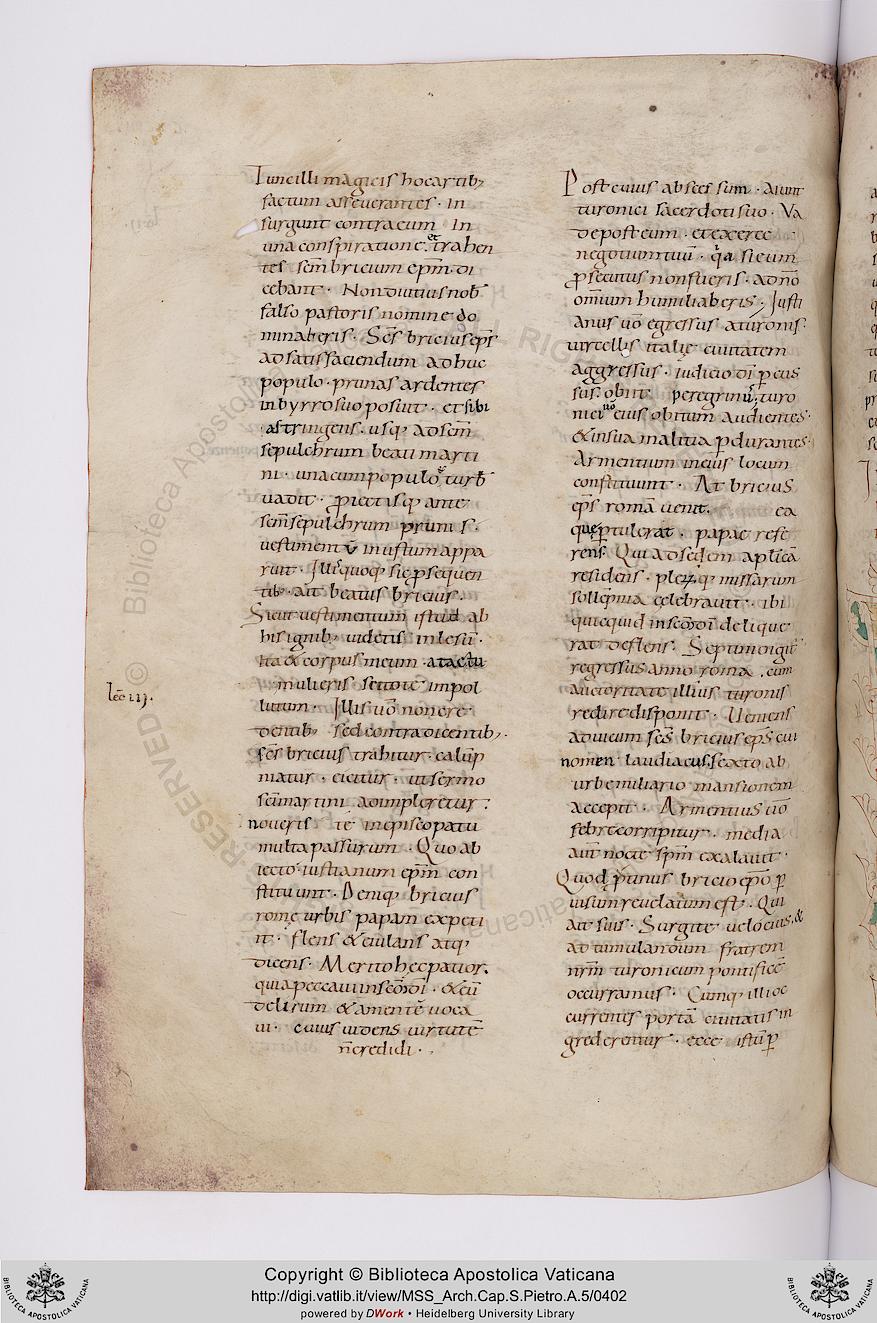 Tunc illi magicis hoc artib;
factum asseuerantes · In
surgunt contra eum In
una conspiratione · et trahen
tes · scm bricium epm · di
cebant · Non diutius nob
falso pastoris nomine do
minaberis · Scs bricius eps
ad satisfaciendum adhuc
populo · prunas ardentes
in byrro suo posuit · et sibi
astringens · usq; ad scm
sepulchrum beati marti
ni · una cum populo turb
uadit · proiectisq; ante
scm sepulchrum prunis ·
uestimentu inustum appa
ruit · Illis quoq; sic psequen
tib; ait beatus bricius ·
Sicut uestimentum istud ab
his ignib; uidetis inlesu ·
Ita & corpus meum · a tactu
mulieris · se
lutum · Illis uo non cre
dentib; sed contradicentib; ·
scs bricius trahitur · calup
niatur · eicitur · ut sermo
sci martini adimpleretur :
noueris te in episcopatu
multa passurum · Quo ab
iecto · iustianum epm con
stituunt · Deniq; bricius
rome urbis papam expeti
it · flens & eiulans atq;
dicens · Merito hec patior ·
quia peccaui in scm di · & eu
delirum & amente uoca
ui · cuius uidens uirtute
n credidi ·
lec iij ·
Post cuius absces sum · Aiunt
turonici sacerdoti suo · Va
de post eum · et exerce
negotium tuu · qa si eum
psecutus non fueris · ad nro
omnium humiliaberis · Iusti
anus uo egressus a turonis
uircellis italie ciuitatem
aggressus · iudicio di pcus
sus · obiit peregrinus · turo
nici uo eius obitum audientes ·
& in sua malitia pdurantes ·
Armentium in eius locum
constituunt · At bricius
eps roma uenit · ea
que ptulerat · papae refe
rens · Qui ad sedem aplica
residens · pleruq; missarum
sollempnia celebrauit · ibi
quicquid in scm di delique
rat deflens · Septimo igit
regressus anno roma · cum
auctoritate illius turonis
redire disponit · Ueniens
ad uicum scs bricius eps cui
nomen laudiacus · sexto ab
urbe miliario mansionem
accepit · Armentius uo
febre corripitur · media
aut nocte spm exalauit ·
Quod ptinus bricio epo p
uisum reuelatum est · Qui
ait suis · Surgite uelocius · &
ad tumulandum fratrem
nrm turonicum pontifice
occurramus · Cumq; illi oc
currentes porta ciuitatis in
grederentur · ecce istu p
Copyright © Biblioteca Apostolica Vaticana
http://digi.vatlib.it/view/MSS_Arch.Cap.S.Pietro.A.5/0402
powered by DWork • Heidelberg University Library